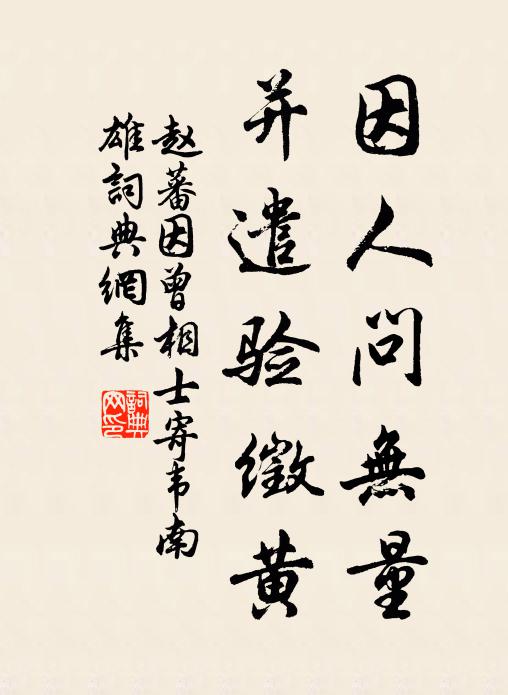 因人問無量
并遣验徵黄
赵蕃因曾相士寄韦南
雄詞典網集
詞典
网印